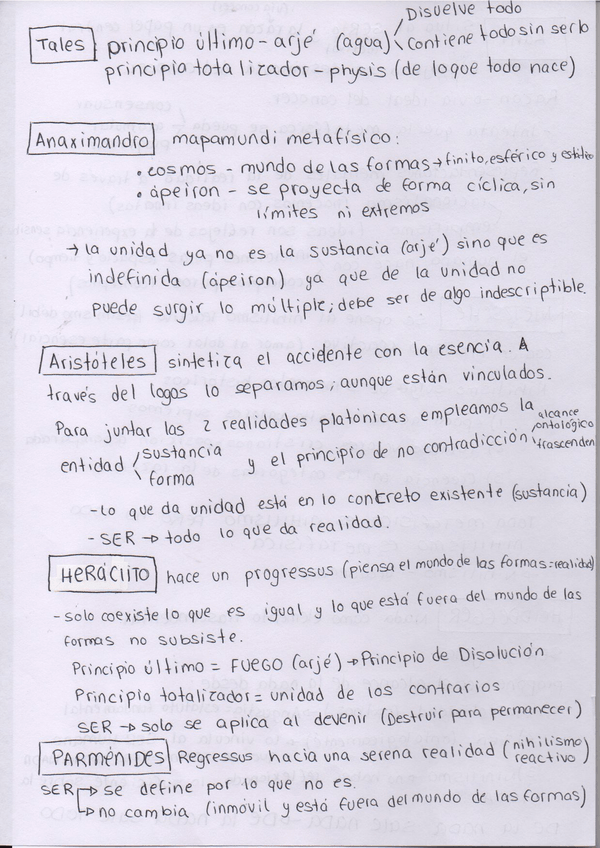 Disuelve todo
Tales principio último - arjé (agua) contiene todo sin serlo
principio totalizador - physis (de lo que todo nace)
Anaximandro mapamundi metafísico:
• cosmos - mundo de las formas → finito, esférico y estático
ápeiron - se proyecta de forma cíclica, sin
límites ni extremos
→ la unidad ya no es la sustancia (arjé) sino que es
indefinida (ápeiron) ya que de la unidad no
puede surgir lo múltiple; debe ser de algo indescriptible.
Aristóteles sintetiza el accidente con la esencia. A
través del logos lo separamos, aunque están vinculados.
Para juntar las 2 realidades platónicas empleamos la alcance
ontológico
entidad sustancia y el principio de no contradicción trascenden
forma
- lo que da unidad está en lo concreto existente (sustancia)
- SER → todo lo que da realidad.
HERÁCLITO hace un progressus (piensa el mundo de las formas = realidad)
- solo coexiste lo que es igual y lo que está fuera del mundo de las
formas no subsiste.
Principio último = FUEGO (arjé) → Principio de Disolución
Principio totalizador = unidad de los contrarios
SER → solo se aplica al devenir (Destruir para permanecer)
PARMÉNIDES Regressus hacia una serena realidad (nihilismo
reactivo)
SER → se define por lo que no es.
→ no cambia (inmóvil y está fuera del mundo de las formas)